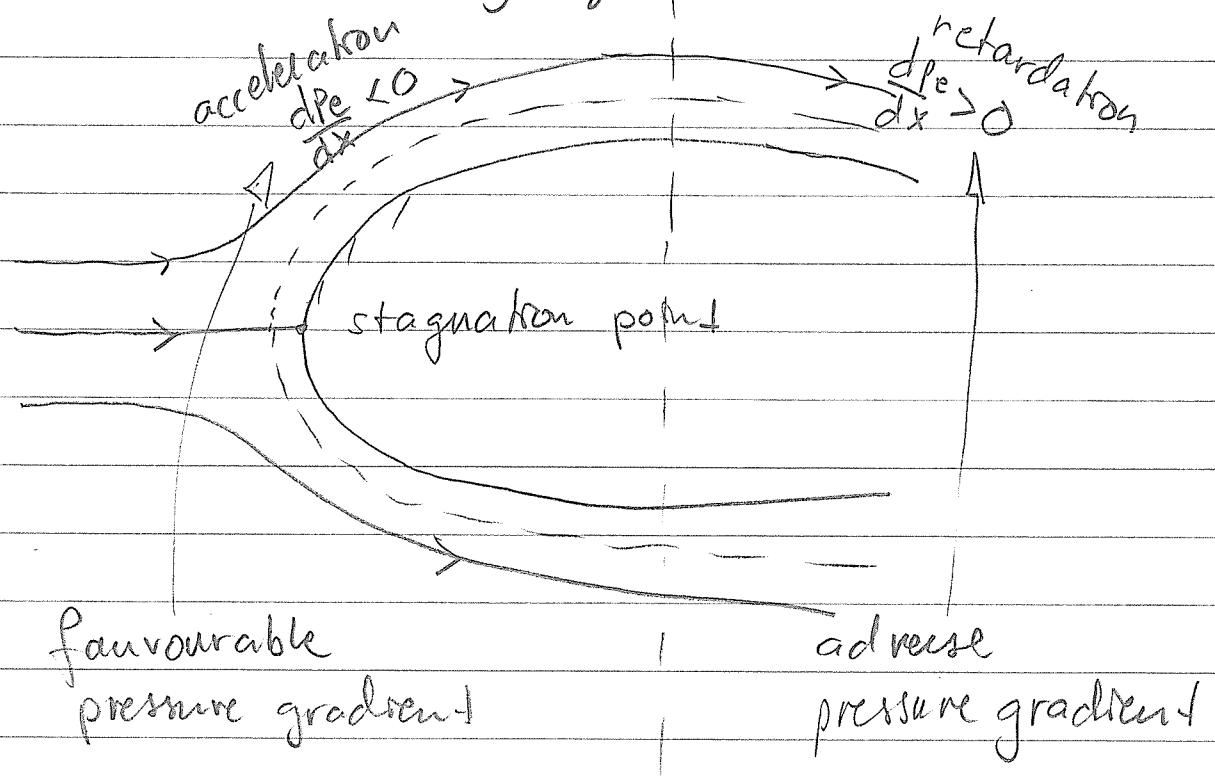 acceleration
dPe/dx < 0
retardation
dPe/dx > 0
stagnation point
fauvourable
pressure gradient
adverse
pressure gradient